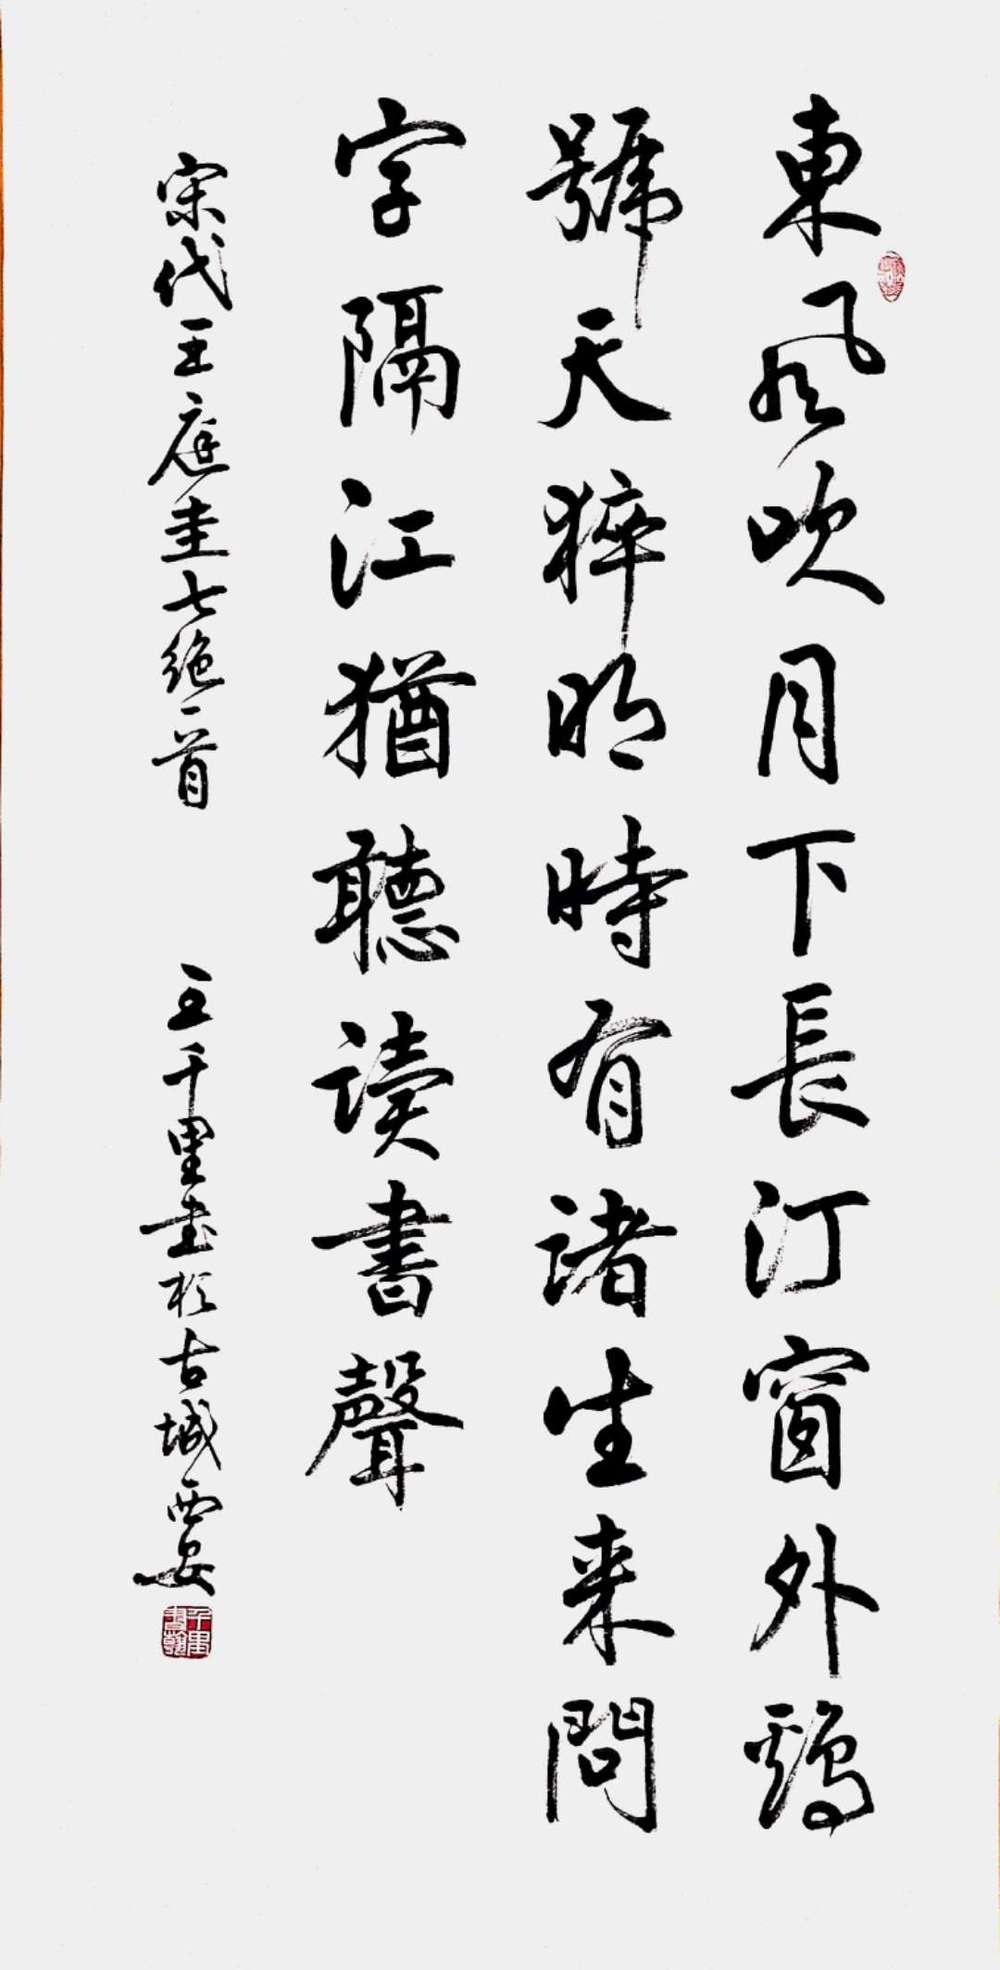 東風吹月下長汀窗外鷄
號天猝明時有諸生来問
字隔江猶聽讀書聲
宋代王庭圭七絶一首 王千里書於古城西安